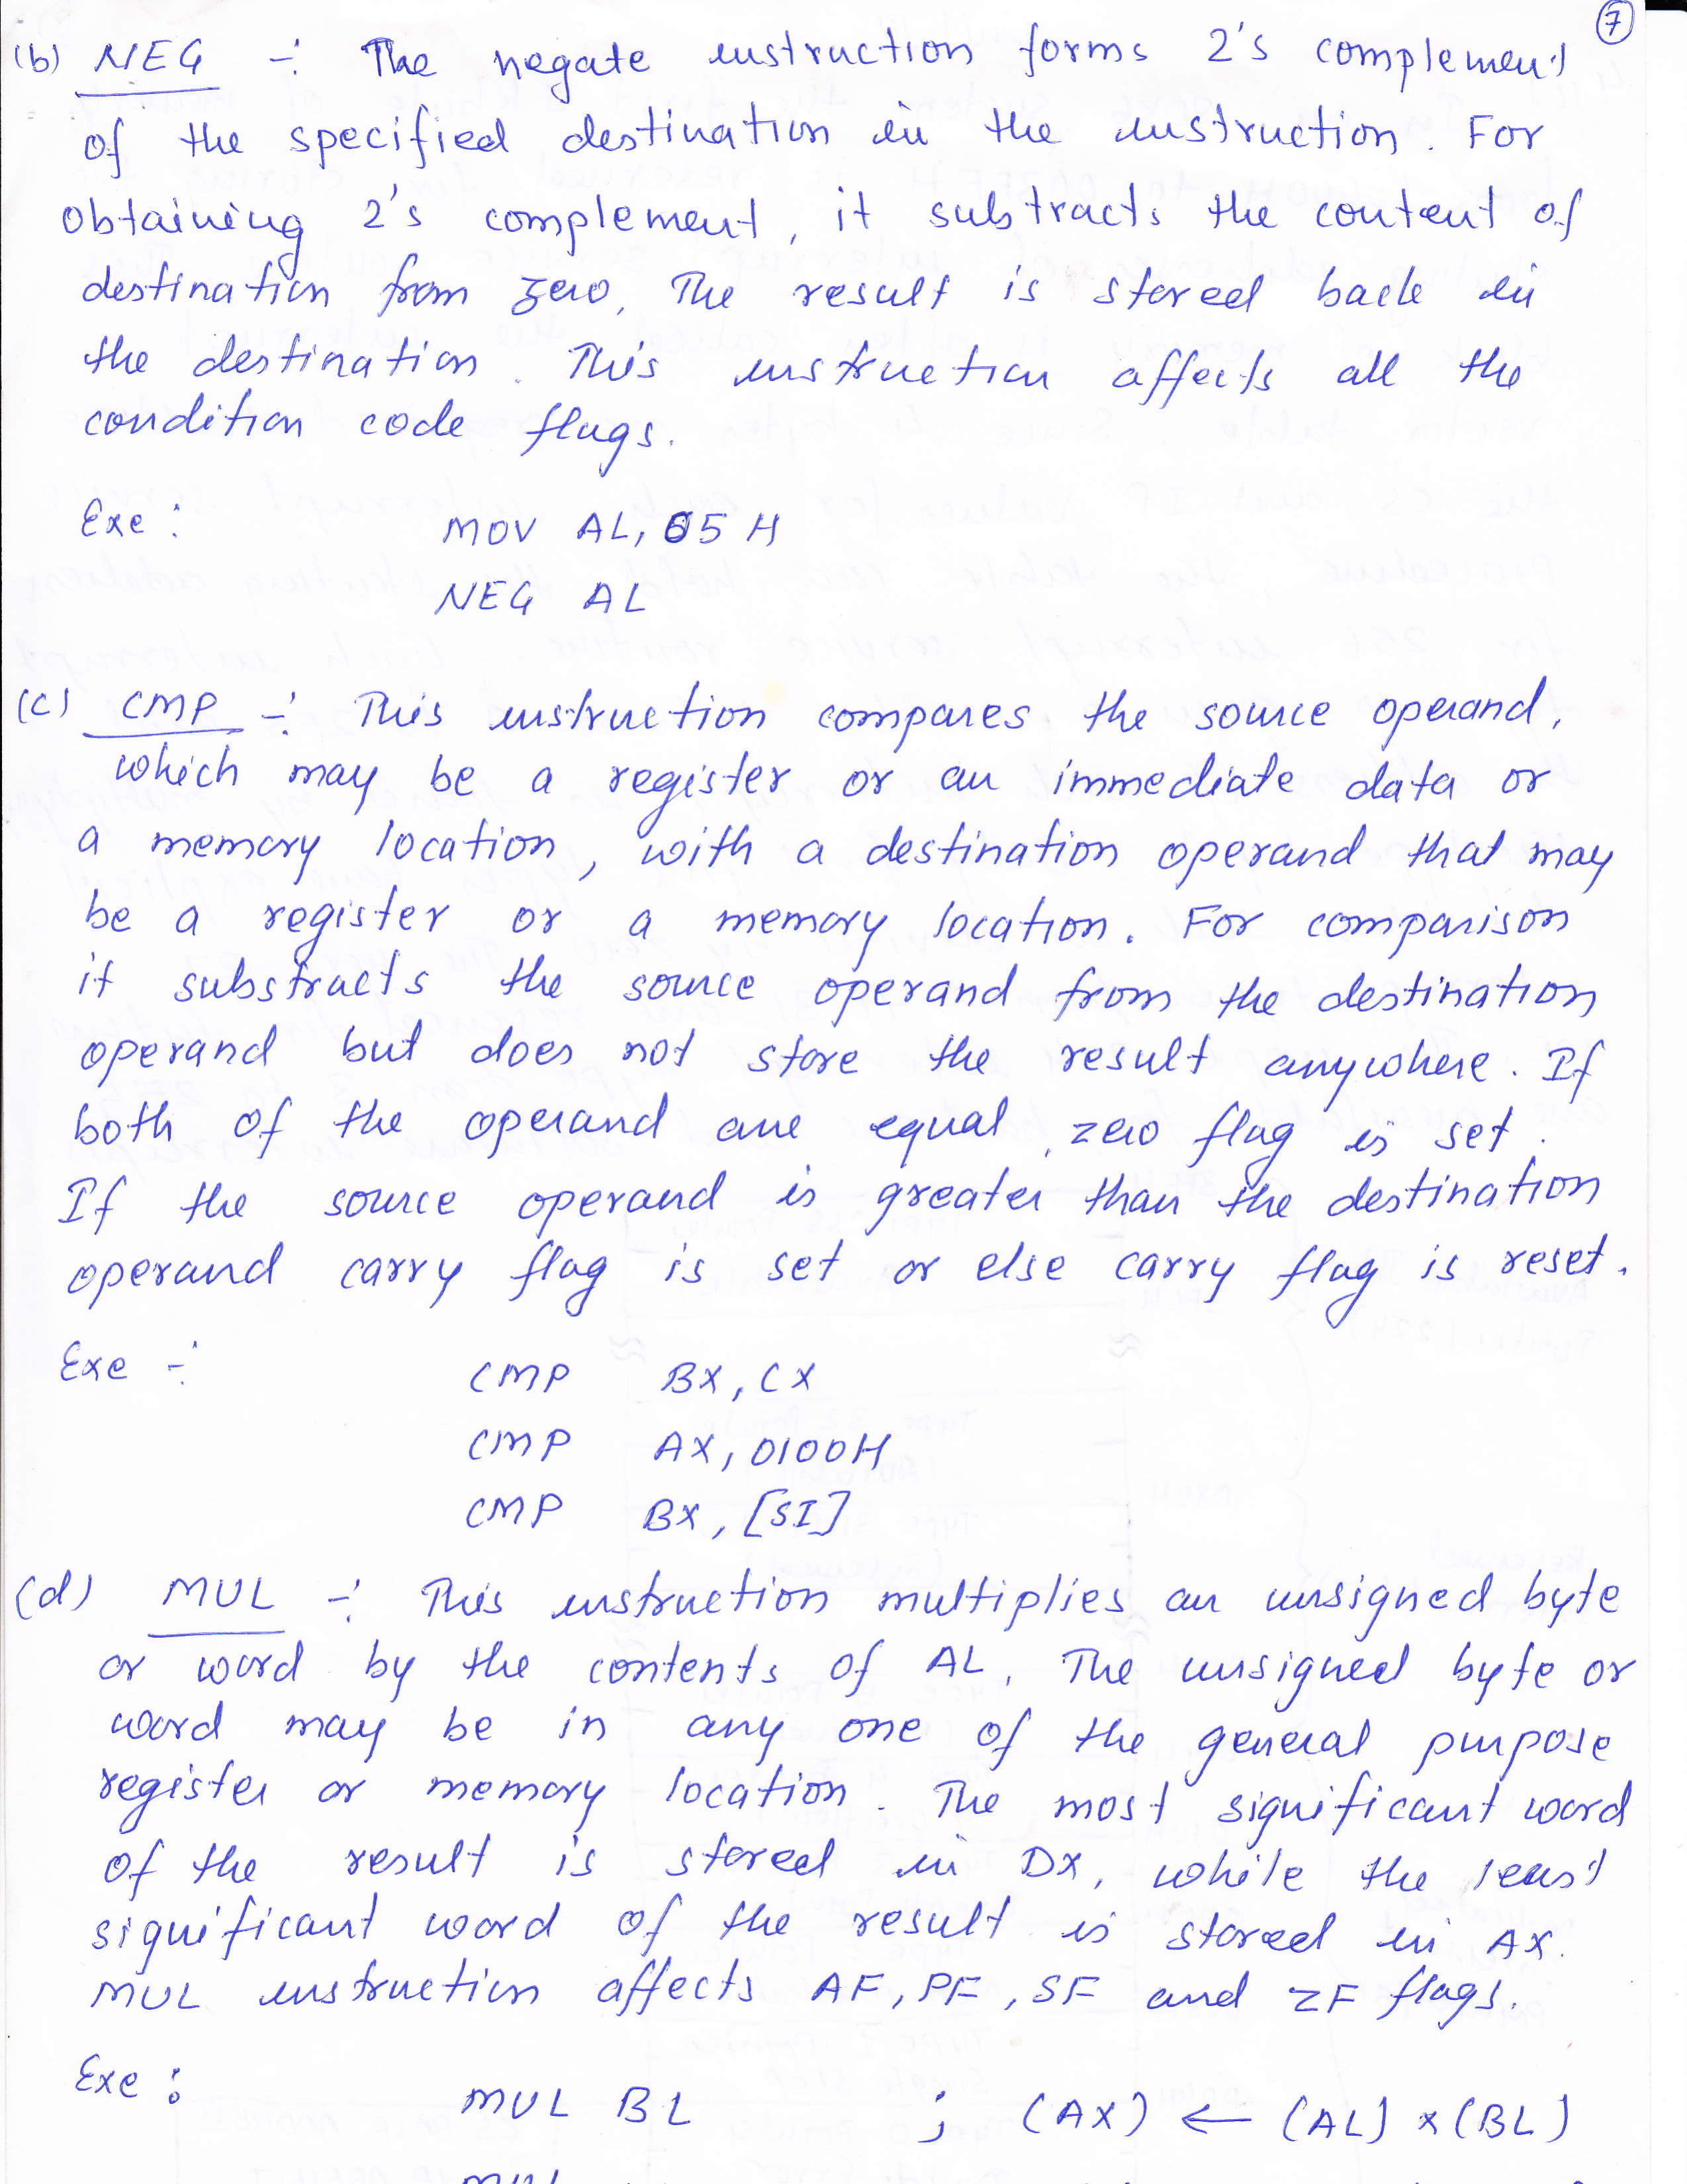 7
(b) NEG ÷ The negate instruction forms 2's complement
of the specified destination in the instruction. For
obtaining 2's complement, it substracts the content of
destination from zero, The result is stored back in
the destination. This instruction affects all the
condition code flags.
Exe : MOV AL, 05 H
NEG AL
(c) CMP ÷ This instruction compares the source operand,
which may be a register or an immediate data or
a memory location, with a destination operand that may
be a register or a memory location. For comparison
it substracts the source operand from the destination
operand but does not store the result anywhere. If
both of the operand are equal, zero flag is set.
If the source operand is greater than the destination
operand carry flag is set or else carry flag is reset.
Exe ÷ CMP BX, CX
CMP AX, 0100H
CMP BX, [SI]
(d) MUL ÷ This instruction multiplies an unsigned byte
or word by the contents of AL. The unsigned byte or
word may be in any one of the general purpose
register or memory location. The most significant word
of the result is stored in DX, while the least
significant word of the result is stored in AX.
MUL instruction affects AF, PF, SF and ZF flags.
Exe : MUL BL ; (AX) ← (AL) x (BL)